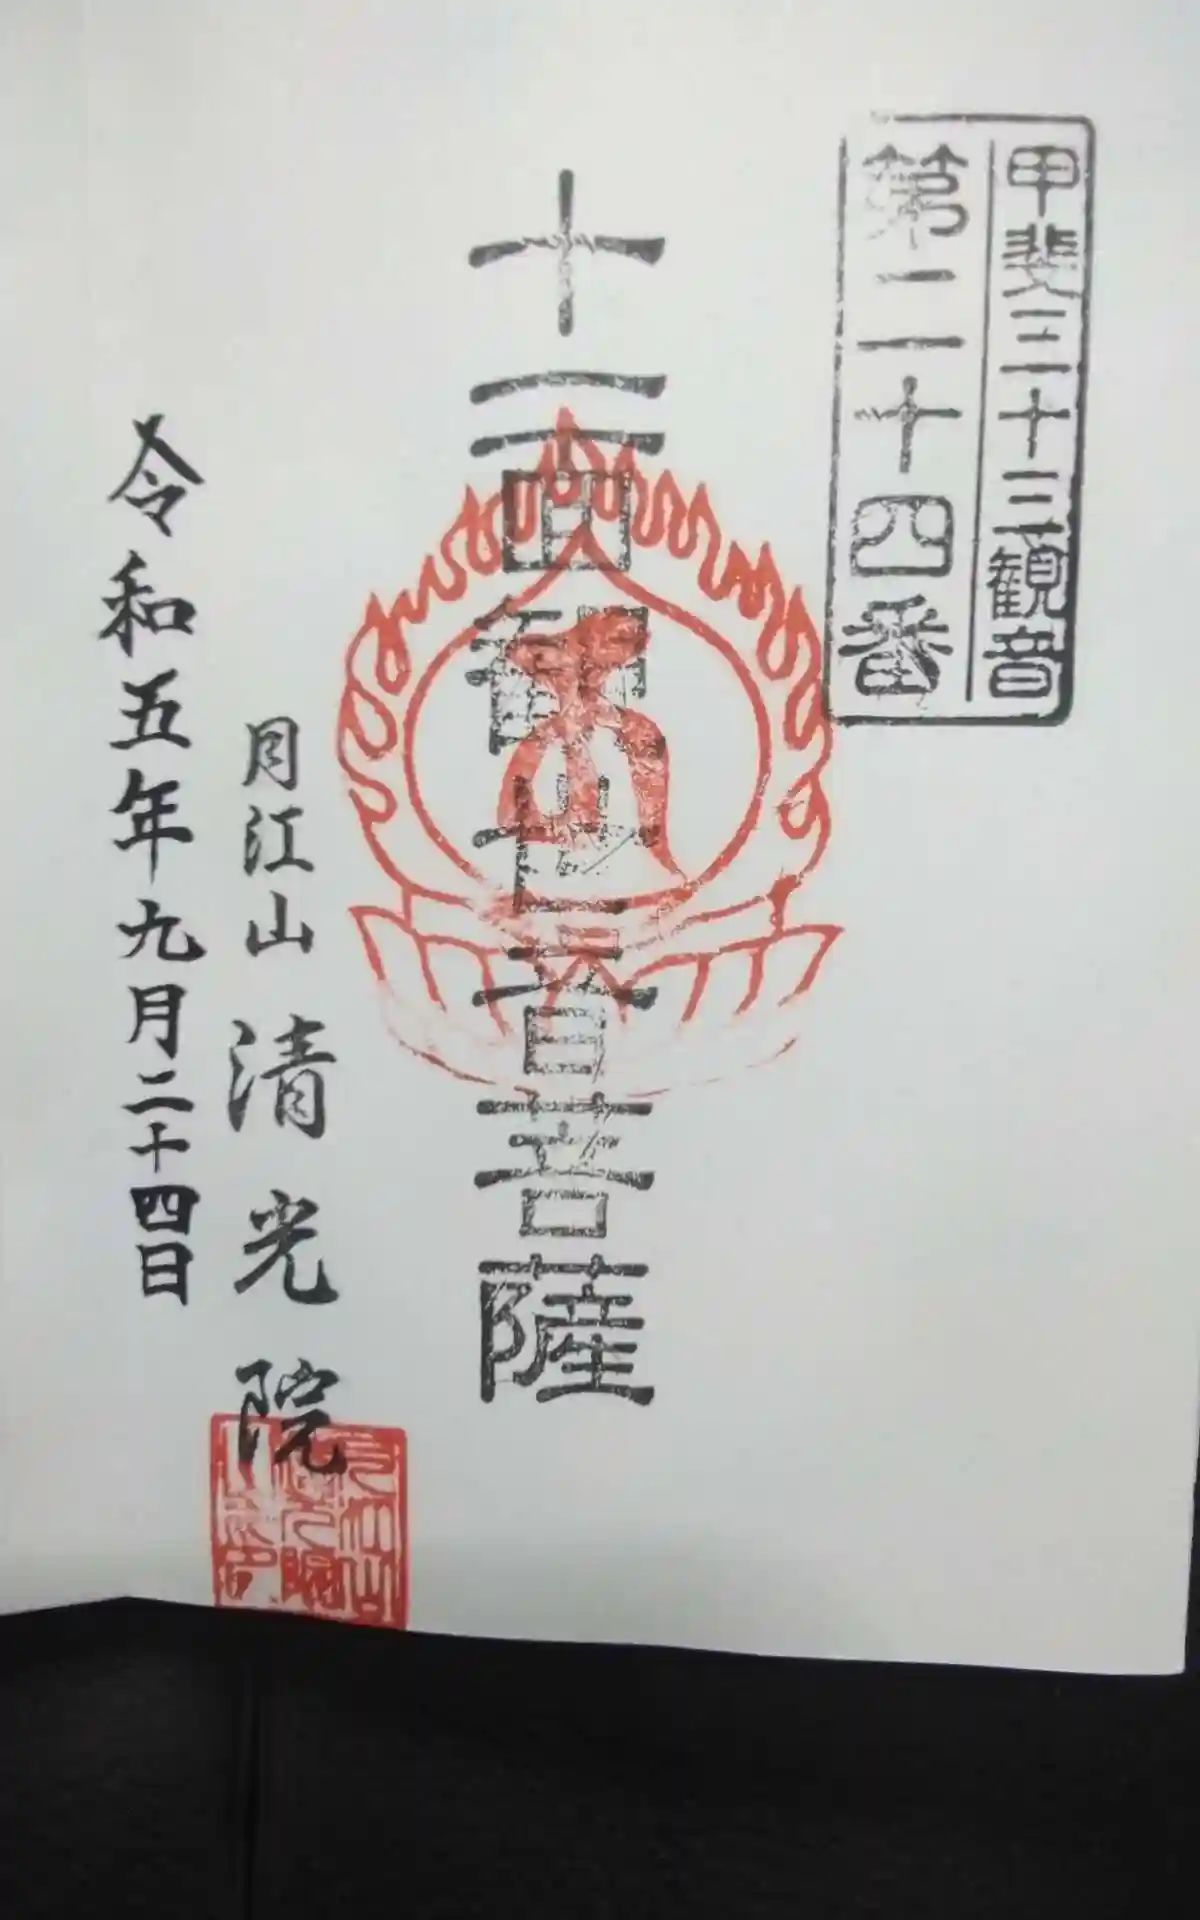 甲斐三十三観音
第二十四番
十一面観世音菩薩
月江山 清光院
令和五年九月二十四日
月江山
清光院